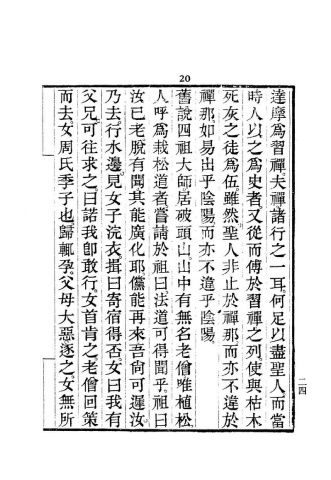 20
達摩爲習禪夫禪諸行之一耳何足以盡聖人而當
時人以之爲史者又從而傅於習禪之列使與枯木
死灰之徒爲伍雖然聖人非止於禪那而亦不違於
禪那如易出乎陰陽而亦不違乎陰陽
舊說四祖大師居破頭山山中有無名老僧唯植松
人呼爲栽松道者嘗請於祖曰法道可得聞乎祖曰
汝已老脫有聞其能廣化耶儻能再來吾尚可遲汝
乃去行水邊見女子浣衣揖曰寄宿得否女曰我有
父兄可往求之曰諾我卽敢行女首肯之老僧回策
而去女周氏季子也歸輒孕父母大惡逐之女無所
二四